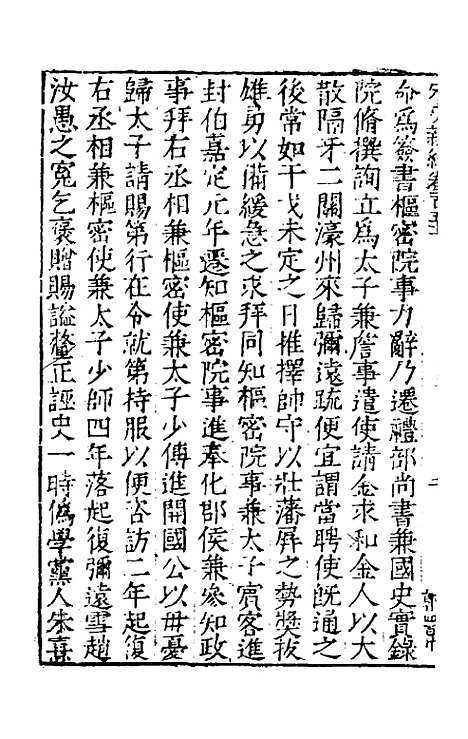 命爲簽書樞密院事力辭乃遷禮部尚書兼國史實錄
院脩撰詢立爲太子兼詹事遣使請金求和金人以大
散隔牙二關濠州來歸彌遠䟽便宜謂當聘使旣通之
後常如干戈未定之日推擇帥守以壯藩屏之勢奬拔
雄勇以備緩急之求拜同知樞密院事兼太子賔客進
封伯嘉定元年遷知樞密院事進奉化郡侯兼叅知政
事拜右丞相兼樞密使兼太子少傅進開國公以毋憂
歸太子請賜第行在令就第持服以便咨訪二年起復
右丞相兼樞密使兼太子少師四年落起復彌遠雪趙
汝愚之寃乞褒贈賜謚釐正誣史一時僞學黨人朱熹